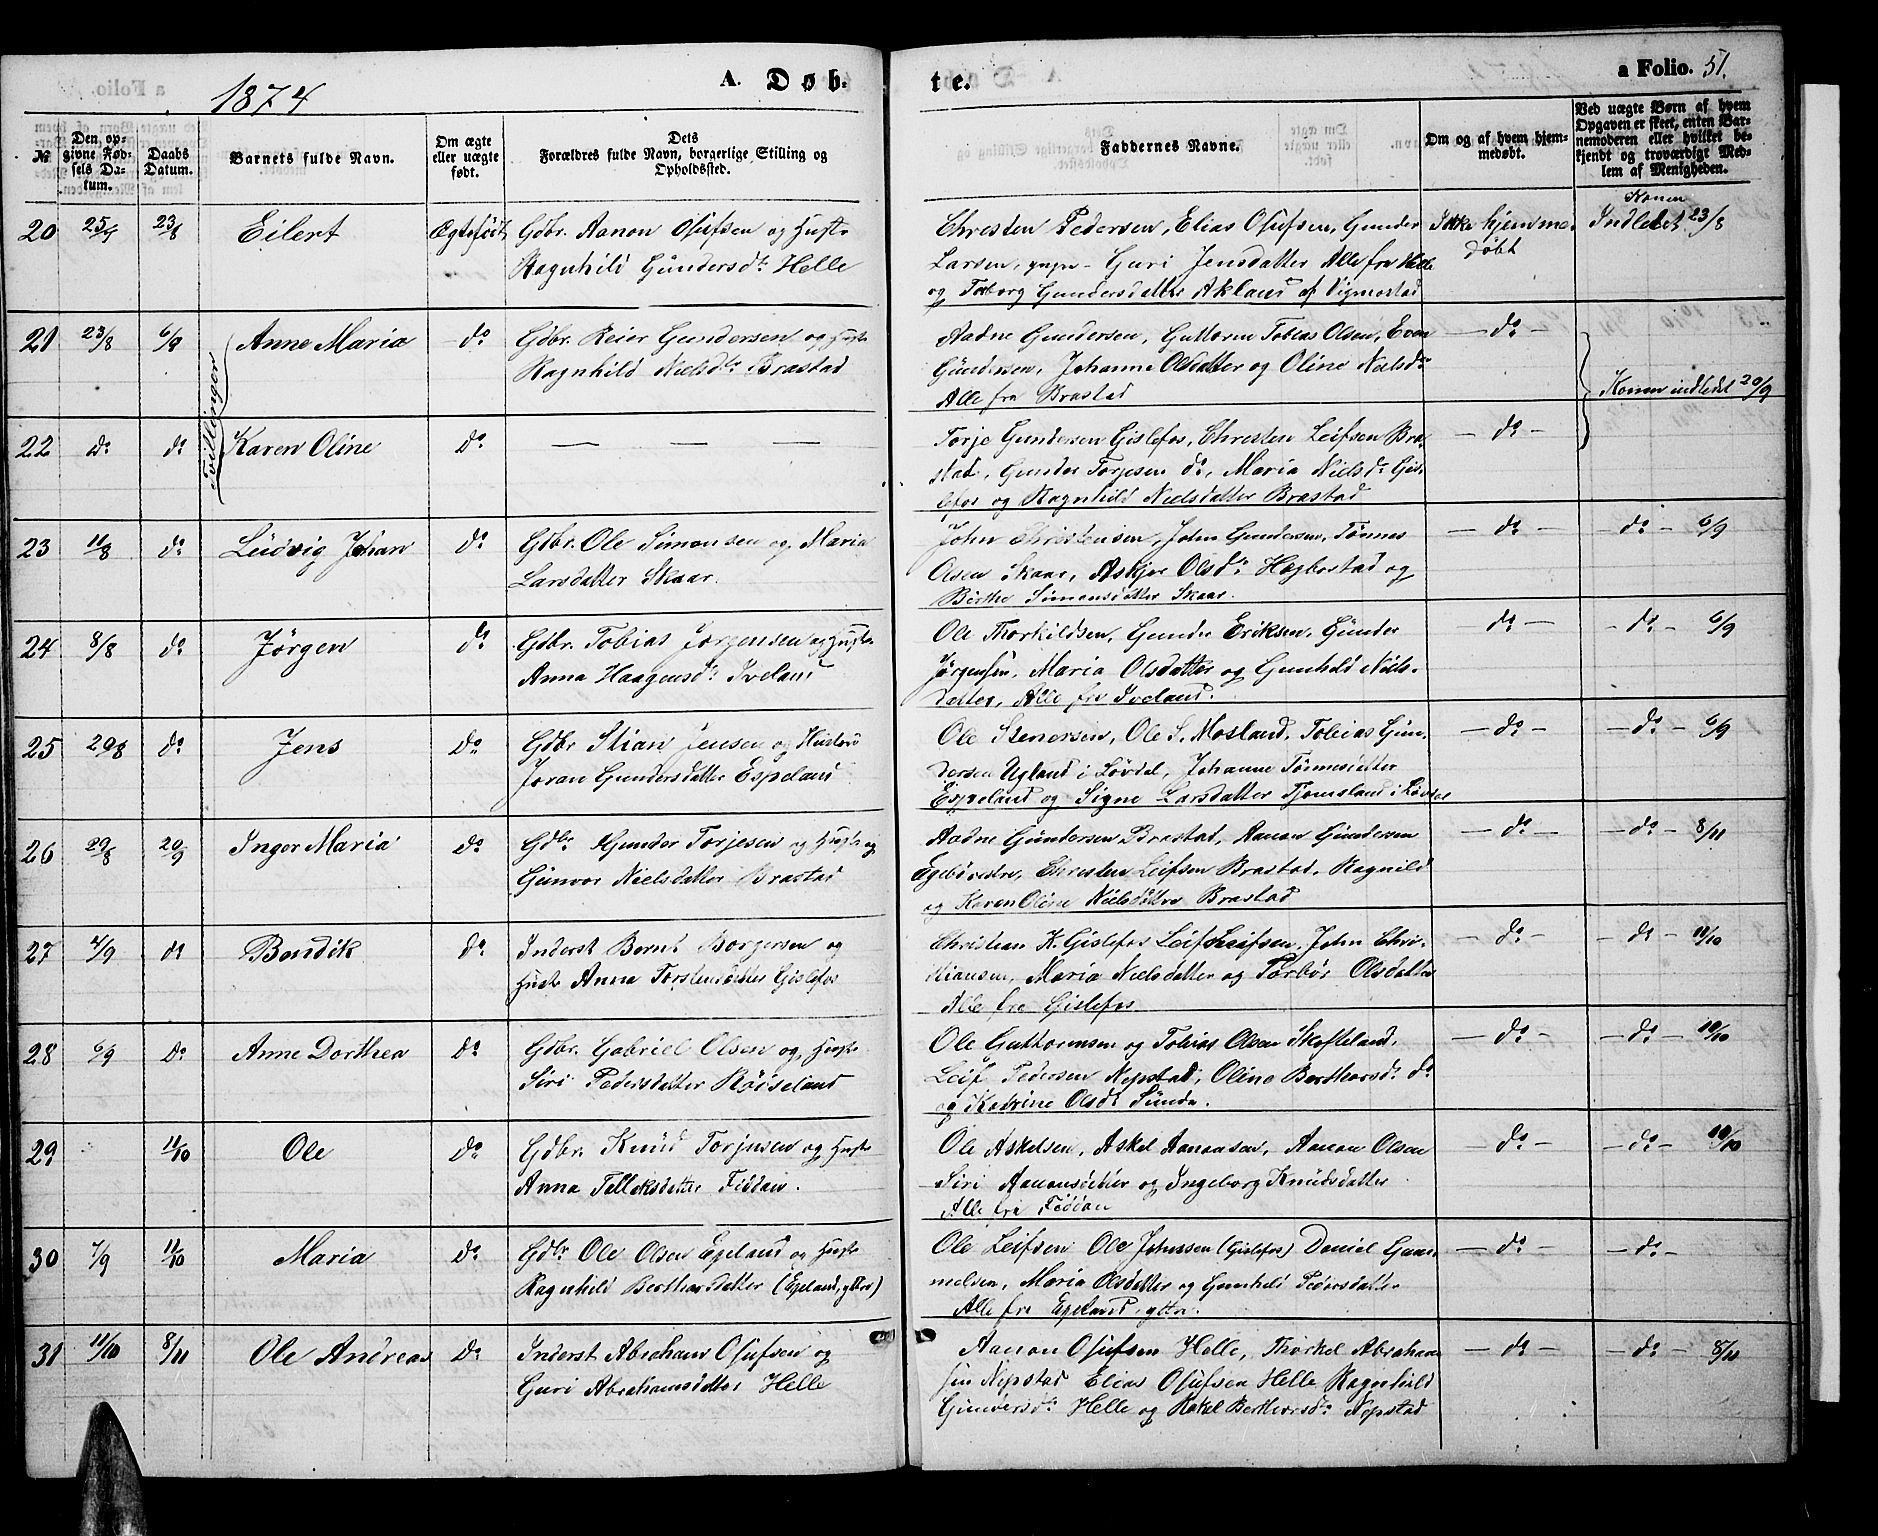 1874
A. Døb-
te.
a Folio. 51.
№
Den opgivne Fødsels Datum.
Daabs Datum.
Barnets fulde Navn.
Om ægte eller uægte født.
Dets Forældres fulde Navn, borgerlige Stilling og Opholdssted.
Faddernes Navne.
Om og af hvem hjemmedøbt.
Ved uægte Børn af hvem Opgaven er skeet, enten Barnemoderen eller hvilket bekjendt og troværdigt Medlem af Menigheden.
20 23/8 Eilert Ægtefødt Gdbr. Aanon Osufsen og Hust:
Ragnhild Gundersdtr Helle
Chresten Pedersen, Elias Osufsen, Gunder
Larsen, Guri Jensdatter Alle fra Helle
og Torborg Gundersdatter Akland af Vigmostad
Ikke hjemme-
døbt
Konen
Indledet 23/8
21 23/8 6/9 Anne Maria do Gdbr. Reier Gundersen og Hust:
Ragnhild Nielsdtr Brastad
Tvillinger
Aadne Gundersen, Guttorm Tobias Olsen, Even
Gundersen, Johanne Olsdatter og Oline Nielsdtr
Alle fra Brastad
— do —
Konen indledet 20/9
22 do do Karen Oline do — — — —
Torje Gundersen Gislefos, Chresten Leifsen Bra-
stad, Gunder Torjesen do, Maria Nielsdtr Gis-
lefos og Ragnhild Nielsdatter Brastad
— do —
23 11/8 do Ludvig Johan do Gdbr. Ole Simonsen og Maria
Larsdatter Skaar.
John Christensen, John Gundersen, Tønnes
Olsen Skaar, Askjer Olsdtr Hægbostad og
Berthe Simonsdatter Skaar.
— do — — do — 6/9
24 8/8 do Jørgen do Gdbr. Tobias Jørgensen og Hust:
Anna Haagensdtr Iveland
Ole Thorkildsen, Gunder Eriksen, Gunder
Jørgensen, Maria Olsdatter og Gunhild Niels-
datter, Alle fra Iveland.
— do — — do — 6/9
25 29/8 do Jens do Gdbr Stian Jensen og Hustru
Joran Gundersdatter Espeland
Ole Stenersen, Ole S. Mosland, Tobias Gun-
dersen Ugland i Løvdal, Johanne Tønnesdatter
Espeland og Signe Larsdatter Tjomsland i Løvdal
— do — — do — 6/9
26 29/8 20/9 Inger Maria do Gdbr Gunder Torjesen og Hustr og
Gunvor Nielsdatter Brastad
Aadne Gundersen Brastad, Aanon Gundersen
Egebøvestre, Chresten Leifsen Brastad, Ragnild
og Karen Oline Nielsdatter Brastad
— do — — do — 8/11
27 4/9 do Bendik do Inderst Bernt Borgersen og
Hust: Anna Torstensdatter Gislefos
Christian K. Gislefos Leif Leifsen, John Chri-
stiansen, Maria Nielsdatter og Torbør Olsdatter
Alle fra Gislefos.
— do — — do — 10/10
28 6/9 do Anne Dorthea do Gdbr. Gabriel Olsen og Hust:
Siri Pedersdatter Røiseland
Ole Guttormsen og Tobias Olsen Skofteland,
Leif Pedersen Nepstad, Oline Berthorsdr do
og Katrine Olsdt Sunde.
— do — — do — 10/10
29 11/10 Ole do Gdbr. Knud Torjusen og Hust:
Anna Telleksdatter Fiddan.
Ole Askelsen, Askel Aanonsen, Aanon Olsen
Siri Aanonsdatter og Ingeborg Knudsdatter
Alle fra Fiddan
— do — — do — 10/10
30 7/9 11/10 Maria do Gdbr Ole Olsen Egeland og Hust:
Ragnhild Berthorsdatter (Egeland, ytre)
Ole Leifsen Ole Johnssen (Gislefos) Daniel Gun-
nelsen, Maria Olsdatter og Gunhild Pedersdatter
Alle fra Egeland, ytre.
— do — — do —
31 11/10 8/11 Ole Andreas do Inderst Abraham Osufsen og
Guri Abrahamsdatter Helle
Aanon Osufsen Helle, Thorkel Abraham
sen Nepstad Elias Osufsen Helle Ragnhild
Gundersdtr Helle og Rakel Berthorsdtr Nepstad
— do — — do — 8/11